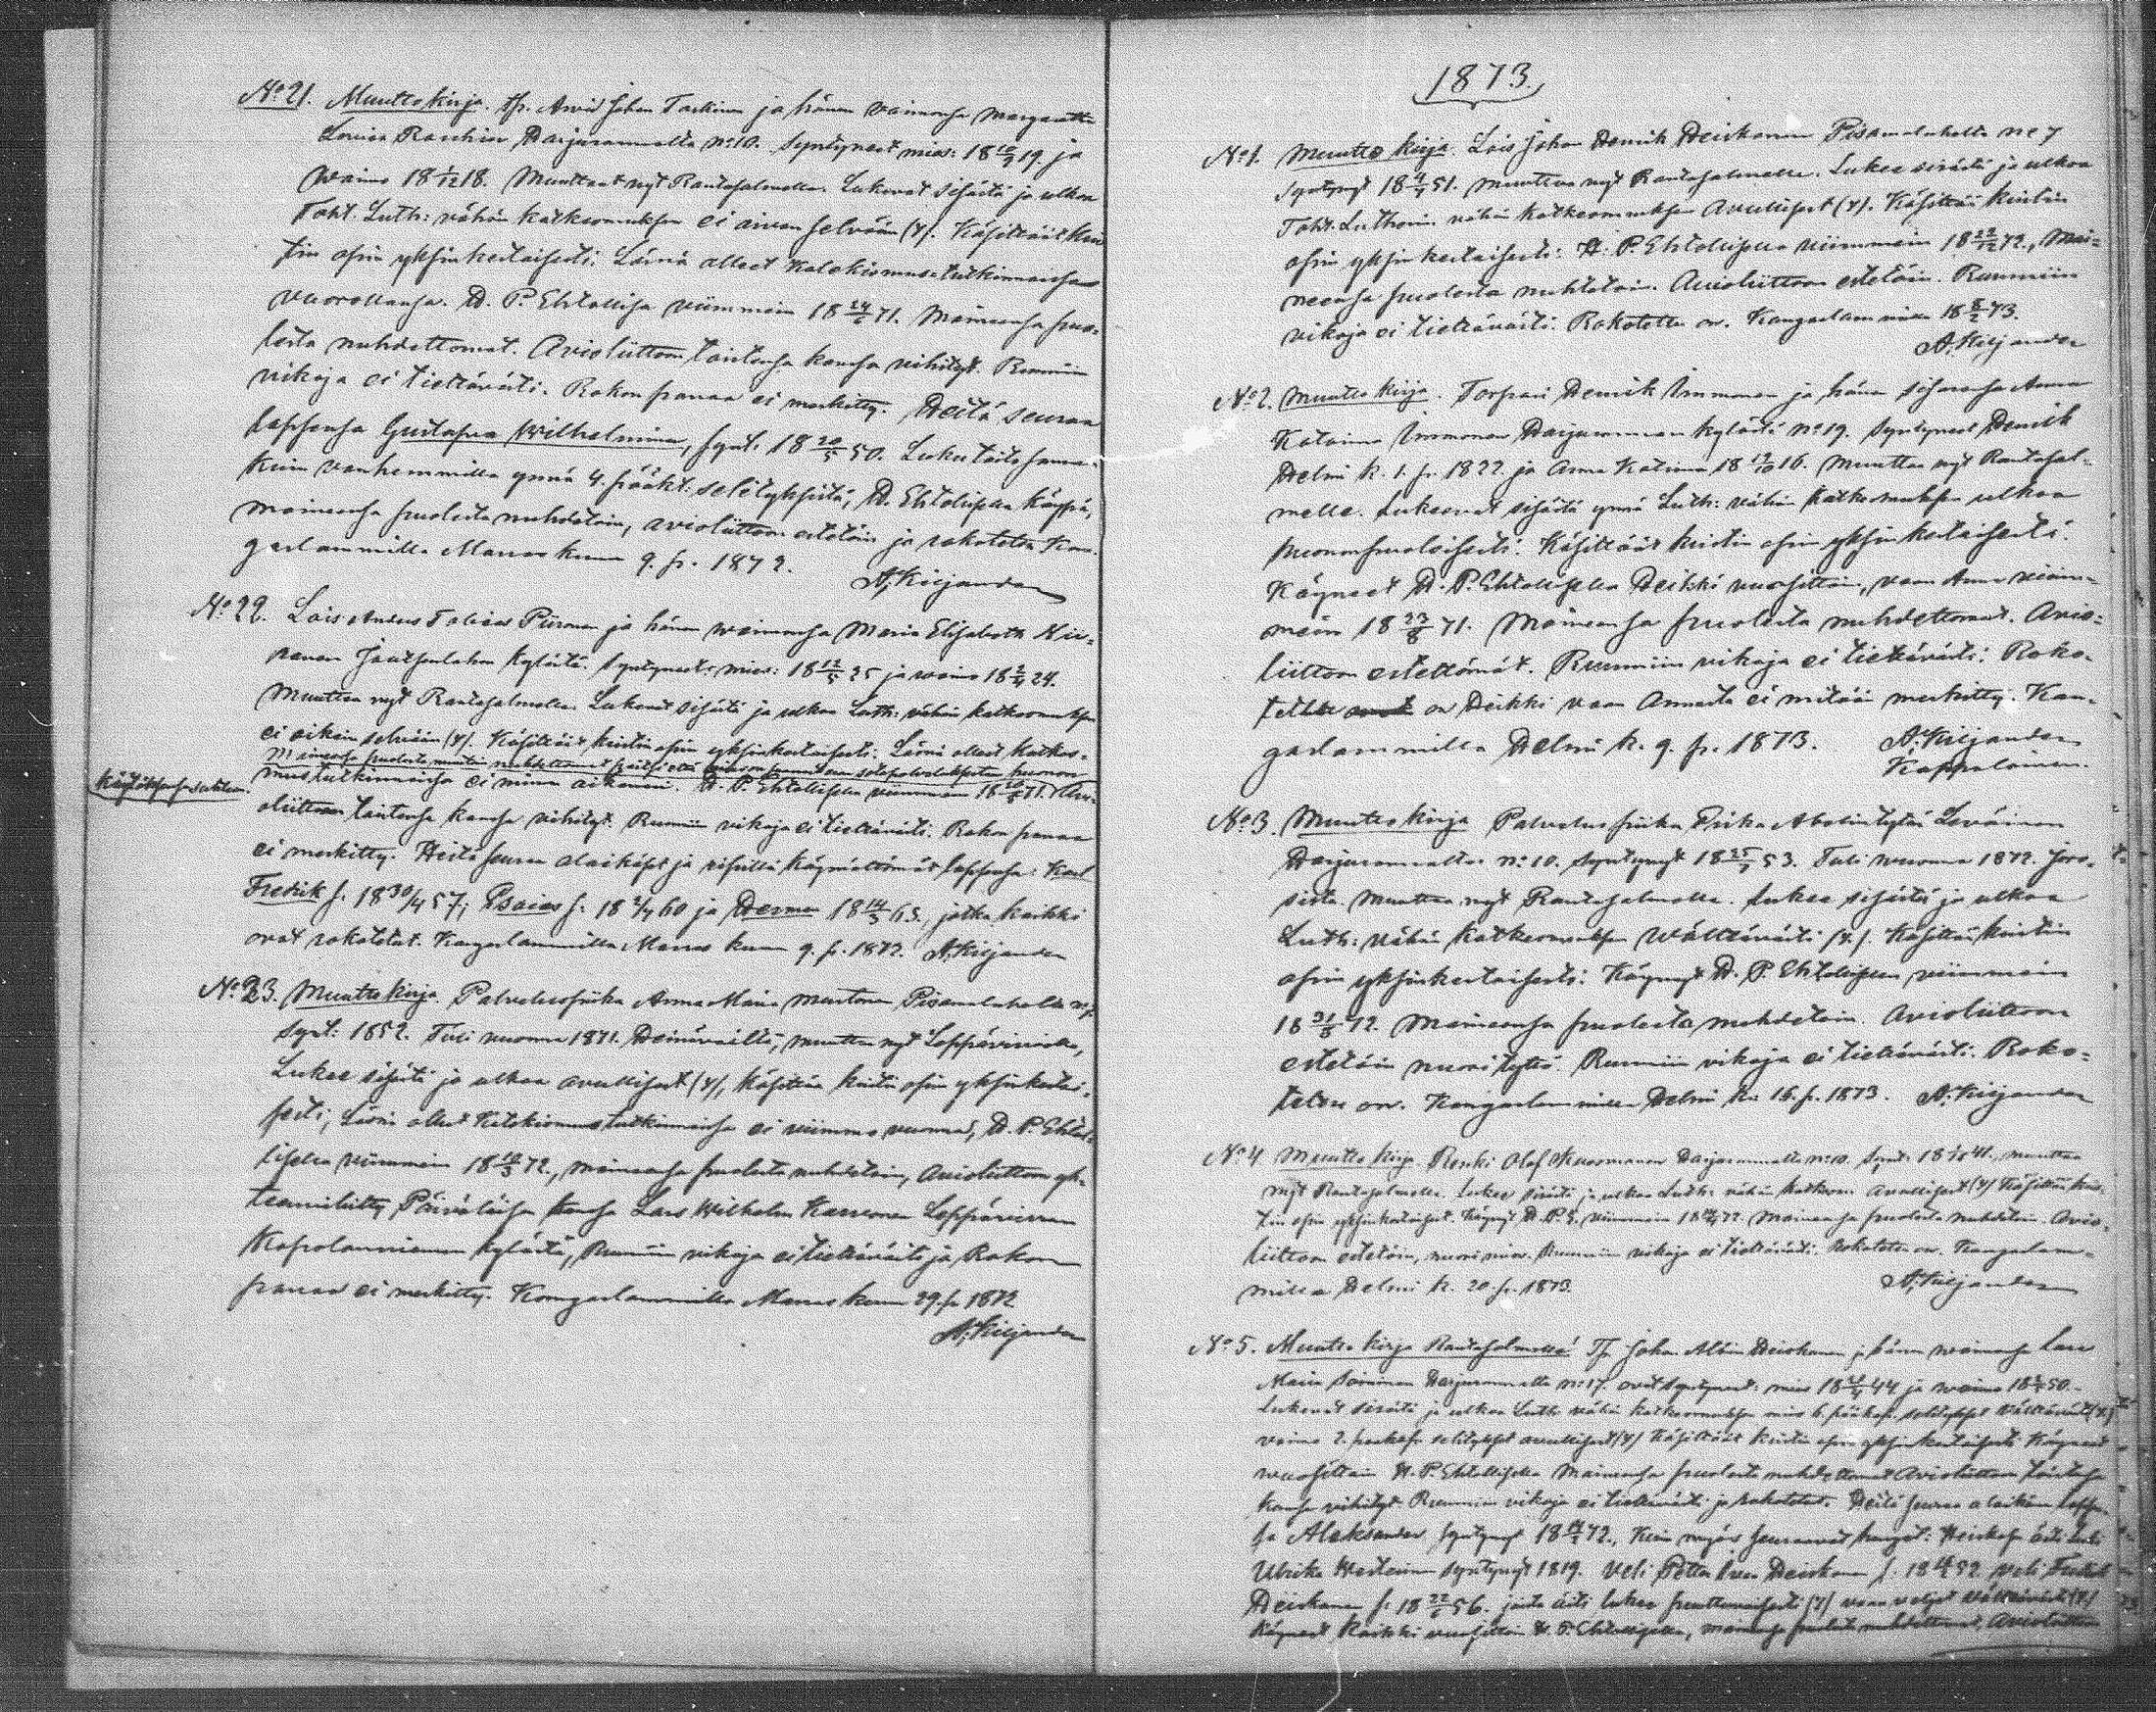 No 21. Muuttokirja. Tp. Arvid Johan Tarkinen ja hänen vaimonsa Margareetta
Lovisa Raschier Harjurannalta no: 10. Syntyneet mies: 18 19. ja
Waimo 18 1/12 18. Muuttaat nyt Rantasalmelle. Lukevat sisästä ja ulkoa
Toht. Luth: vähän katkesmuksen ei aivan selvään (x). Käsittäät kris-
tin opin yksinkertaisesti. Läsnä olleet katekismuse tutkinnoissa
vuorollansa. H. P. Ehtollisella viimmein 18 24/6 71. Maineensa puo-
lesta nuhdettomat. Avioliittoon toistensa kanssa vihityt. Ruumiin
vikoja ei tiettävästi. Rokon panaa ei merkitty. Heitä seuraa
lapsensa Gustafva Wilhelmina, synt. 18 20/5 50. Lukutaito sama
kuin vanhemmilla ynnä 4. pääkk: selityksistä, H. Ehtollisella käypä,
maineensa puolesta nuhdetoin, avioliittoon estetöin ja rokotettu Kan-
gaslammilla Marraskuun 9. p. 1872.
A. Kiljander
No 22. Lois Anders Tobias Piironen ja hänen waimonsa Maria Elisabeth
Joutsenlahen kylästä. Syntyneet: mies: 18 12/5 25 ja waimo 18 24.
Muuttaa nyt Rantasalmelle. Lukevat sisästä ja ulkoa Luth: vähän katkesmuksen
ei oikein selvään (x). Käsittäät kristin opin yksinkertaisesti. Läsnä olleet katkes-
Maineensa puolesta muutoin nuhdettomat
mus tutkinnoissa ei minun aikanani. H. P. Ehtollisella viimmein 18 71. Avi-
oliittoon toistensa kanssa vihityt. Ruumiin vikoja ei tiettävästi. Rokon panaa
ei merkitty. Heitä seuraa alaikäset ja ripillä käymättömät lapsensa: Karl
Fredrik s. 18 30/4 57; Esaias s. 18 2/4 60 ja Herman 18 14/3 63, jotka kaikki
ovat rokotetut. Kangaslammilla Marraskuun 9. p. 1872. A. Kiljander
No 23. Muuttokirja. Palveluspiika Anna Maria Mustonen Pisamalahelta no
Synt: 1852. Tuli vuonna 1871. Heinävesiltä, muuttaa nyt Leppävirroille,
Lukee sisästä ja ulkoa avullisest (x), käsittää kristin opin yksinkertai-
sesti, Läsnä ollut Katekismus tutkinnoissa ei viimme vuonna, H. P. Ehtol-
lisella viimmein 18 10/3 72., maineensa puolesta nuhdetoin, Avioliittoon yh-
teenvihitty Päiväläisen kanssa Lars Wilhelm Karvonen Leppävirran
Kapolanniemen kylästä, Ruumiin vikoja ei tiettävästi ja Rokon
panaa ei merkitty. Kangaslammilla Marraskuun 29. p 1872
A. Kiljander
1873.
No 1. Muuttokirja. Lois Johan Henrik Heiskanen Pisamalahelta no 7
Syntynyt 18 51. Muuttava nyt Rantasalmelle. Lukee sisästä ja ulkoa
Toht. Lutherin vähän katkesmuksen avullisest (x). Käsittää kristin
opin yksinkertaisesti. H. P. Ehtollisella viimmein 18 22/12 72., Mai-
neensa puolesta nuhtetoin. Avioliittoon estetöin. Ruumiin
vikoja ei tiettävästi. Rokotettu on. Kangaslammilla 18 8/2 73.
A. Kiljander
No 2. Muuttokirja. Torpari Henrik Immonen ja hänen sisarensa Anna
Katarina Immonen Harjurannan kylästä no: 19. Syntyneet Henrik
Helmi k. 1. p. 1822 ja Anna Katarina 18 12/10 16. Muuttaa nyt Rantasal-
melle. Lukeevat sisästä ynnä Luth: vähän katkesmuksen ulkoa
huononpuoloisesti. Käsittäät kristin opin yksinkertaisesti.
Käyneet H. P. Ehtollisella Heikki vuosittain, vaan Anna viim-
mein 18 23/8 71. Maineensa puolesta nuhdettomat. Avio-
liittoon estettömät. Ruumiin vikoja ei tiettävästi. Roko-
tettu on Heikki vaan Annasta ei mitään merkitty. Kan-
gaslammilla Helmi k. 9. p. 1873. A. Kiljander
Kappalainen.
No 3. Muuttokirja Palveluspiika Erika Abelintytär Leväinen
Harjurannalta no: 10. Syntynyt 18 25/7 53. Tuli vuonna 1872. Joroi-
sista. Muuttaa nyt Rantasalmelle. Lukee sisästä ja ulkoa
Luth: vähän katkesmuksen wälttävästi (x.). Käsittää kristin
opin yksinkertaisesti. Käynyt H. P. Ehtollisella viimmein
18 31/8 72. Maineensa puolesta nuhdetoin. Avioliittoon
estetöin nuori tyttö. Ruumiin vikoja ei tiettävästi. Roko-
tettu on. Kangaslammilla Helmi k. 16. p. 1873. A. Kiljander
No 4 Muuttokirja. Renki Olof Harjurannalta no: 10. Synt: 18 41., muuttaa
nyt Rantasalmelle. Lukee sisästä ja ulkoa Luth: vähän katkesm: avullisest (x) Käsittää kris-
tin opin yksinkertaisest. Käynyt H. P. E. viimmein 18 72. Maineensa puolesta nuhdetoin. Avio-
liittoon estetöin, nuori mies. Ruumiin vikoja ei tiettävästi. Rokotettu on. Kangaslam-
milla Helmi k. 20. p. 1873. A. Kiljander
No 5. Muuttokirja Rantasalmella! Tp. Johan Albin Heiskanen ja hänen waimonsa
Maria Soininen Harjurannalta no: 17. ovat syntyneet: mies 18 44 ja waimo 18 50.
Lukevat sisästä ja ulkoa Luth. vähän katkesmuksen mies 6. pääkap. selitykset välttävästi (x.)
vaimo 2. pääkap. selitykset avullisest (x) Käsittäät kristin opin yksinkertaisesti Käyneet
vuosittain H. P. Ehtollisella Maineensa puolesta nuhdettomat Avioliittoon toistensa
kanssa vihityt Ruumiin vikoja ei tiettävästi ja rokotetut. Heitä seuraa alaikäin lapsen-
sa Aleksander syntynyt 18 72., Kuin myös seuraavat
Ulrika syntynyt 1819. Veli Petter Heiskanen s. 18 52 veli Fredrik
Heiskanen s. 18 22/6 56. joista äiti lukee (x) vaan veljet välttävästi (x)
Käyneet kaikki vuosittain H. P. Ehtollisella, maineensa puolesta nuhdettomat, Avioliittoon